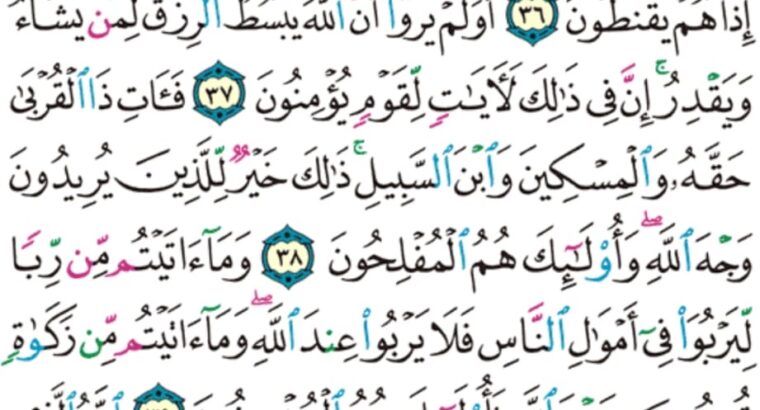 إِذَا هُمْ يَقْنَطُونَ ٣٦ أَوَلَمْ يَرَوْا۟ أَنَّ ٱللَّهَ يَبْسُطُ ٱلرِّزْقَ لِمَن يَشَآءُ
وَيَقْدِرُ ۚ إِنَّ فِى ذَٰلِكَ لَـَٔايَـٰتٍ لِّقَوْمٍ يُؤْمِنُونَ ٣٧ فَـَٔاتِ ذَا ٱلْقُرْبَىٰ
حَقَّهُۥ وَٱلْمِسْكِينَ وَٱبْنَ ٱلسَّبِيلِ ۚ ذَٰلِكَ خَيْرٌ لِّلَّذِينَ يُرِيدُونَ
وَجْهَ ٱللَّهِ ۖ وَأُو۟لَـٰٓئِكَ هُمُ ٱلْمُفْلِحُونَ ٣٨ وَمَآ ءَاتَيْتُم مِّن رِّبًا
لِّيَرْبُوَا۟ فِىٓ أَمْوَٰلِ ٱلنَّاسِ فَلَا يَرْبُوا۟ عِندَ ٱللَّهِ ۖ وَمَآ ءَاتَيْتُم مِّن زَكَوٰةٍ